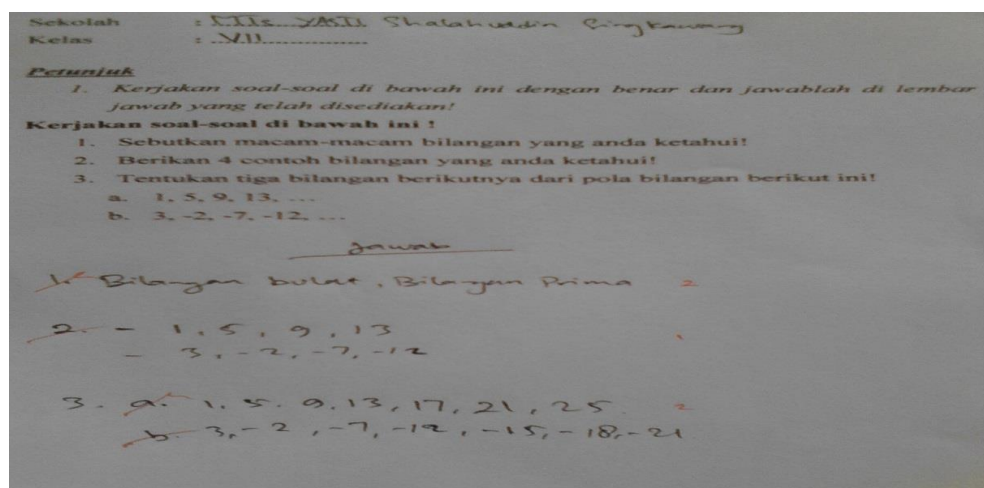 Sekolah : MTs YASTI Shalahuddin Singkawang
Kelas : VII
Petunjuk
1. Kerjakan soal-soal di bawah ini dengan benar dan jawablah di lembar
jawab yang telah disediakan!
Kerjakan soal-soal di bawah ini !
1. Sebutkan macam-macam bilangan yang anda ketahui!
2. Berikan 4 contoh bilangan yang anda ketahui!
3. Tentukan tiga bilangan berikutnya dari pola bilangan berikut ini!
a. 1, 5, 9, 13, ...
b. 3, -2, -7, -12, ...
Jawab
1. Bilangan bulat, Bilangan Prima 2
2. - 1, 5, 9, 13 1
- 3, -2, -7, -12
3. a. 1, 5, 9, 13, 17, 21, 25 2
b. 3, -2, -7, -12, -15, -18, -21